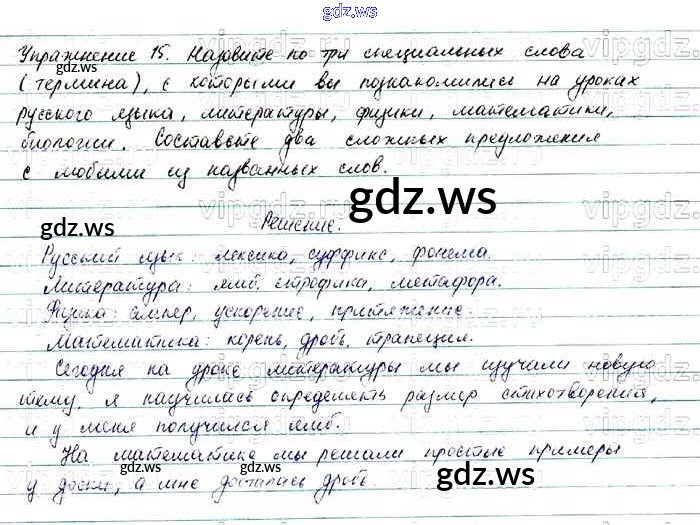 gdz.ws
Упражнение 15. Назовите по три специальных слова
(термина), с которыми вы познакомились на уроках
русского языка, литературы, физики, математики,
биологии. Составьте два сложных предложения
с любыми из названных слов.
gdz.ws
gdz.ws
Решение.
Русский язык: лексика, суффикс, фонема.
Литература: ямб, строфика, метафора.
Физика: ампер, ускорение, притяжение.
Математика: корень, дробь, трапеция.
Сегодня на уроке литературы мы изучали новую
тему, я научилась определять размер стихотворения,
и у меня получился ямб.
На математике мы решали простые примеры
у доски, а мне досталась дробь.
gdz.ws
gdz.ws
gdz.ws